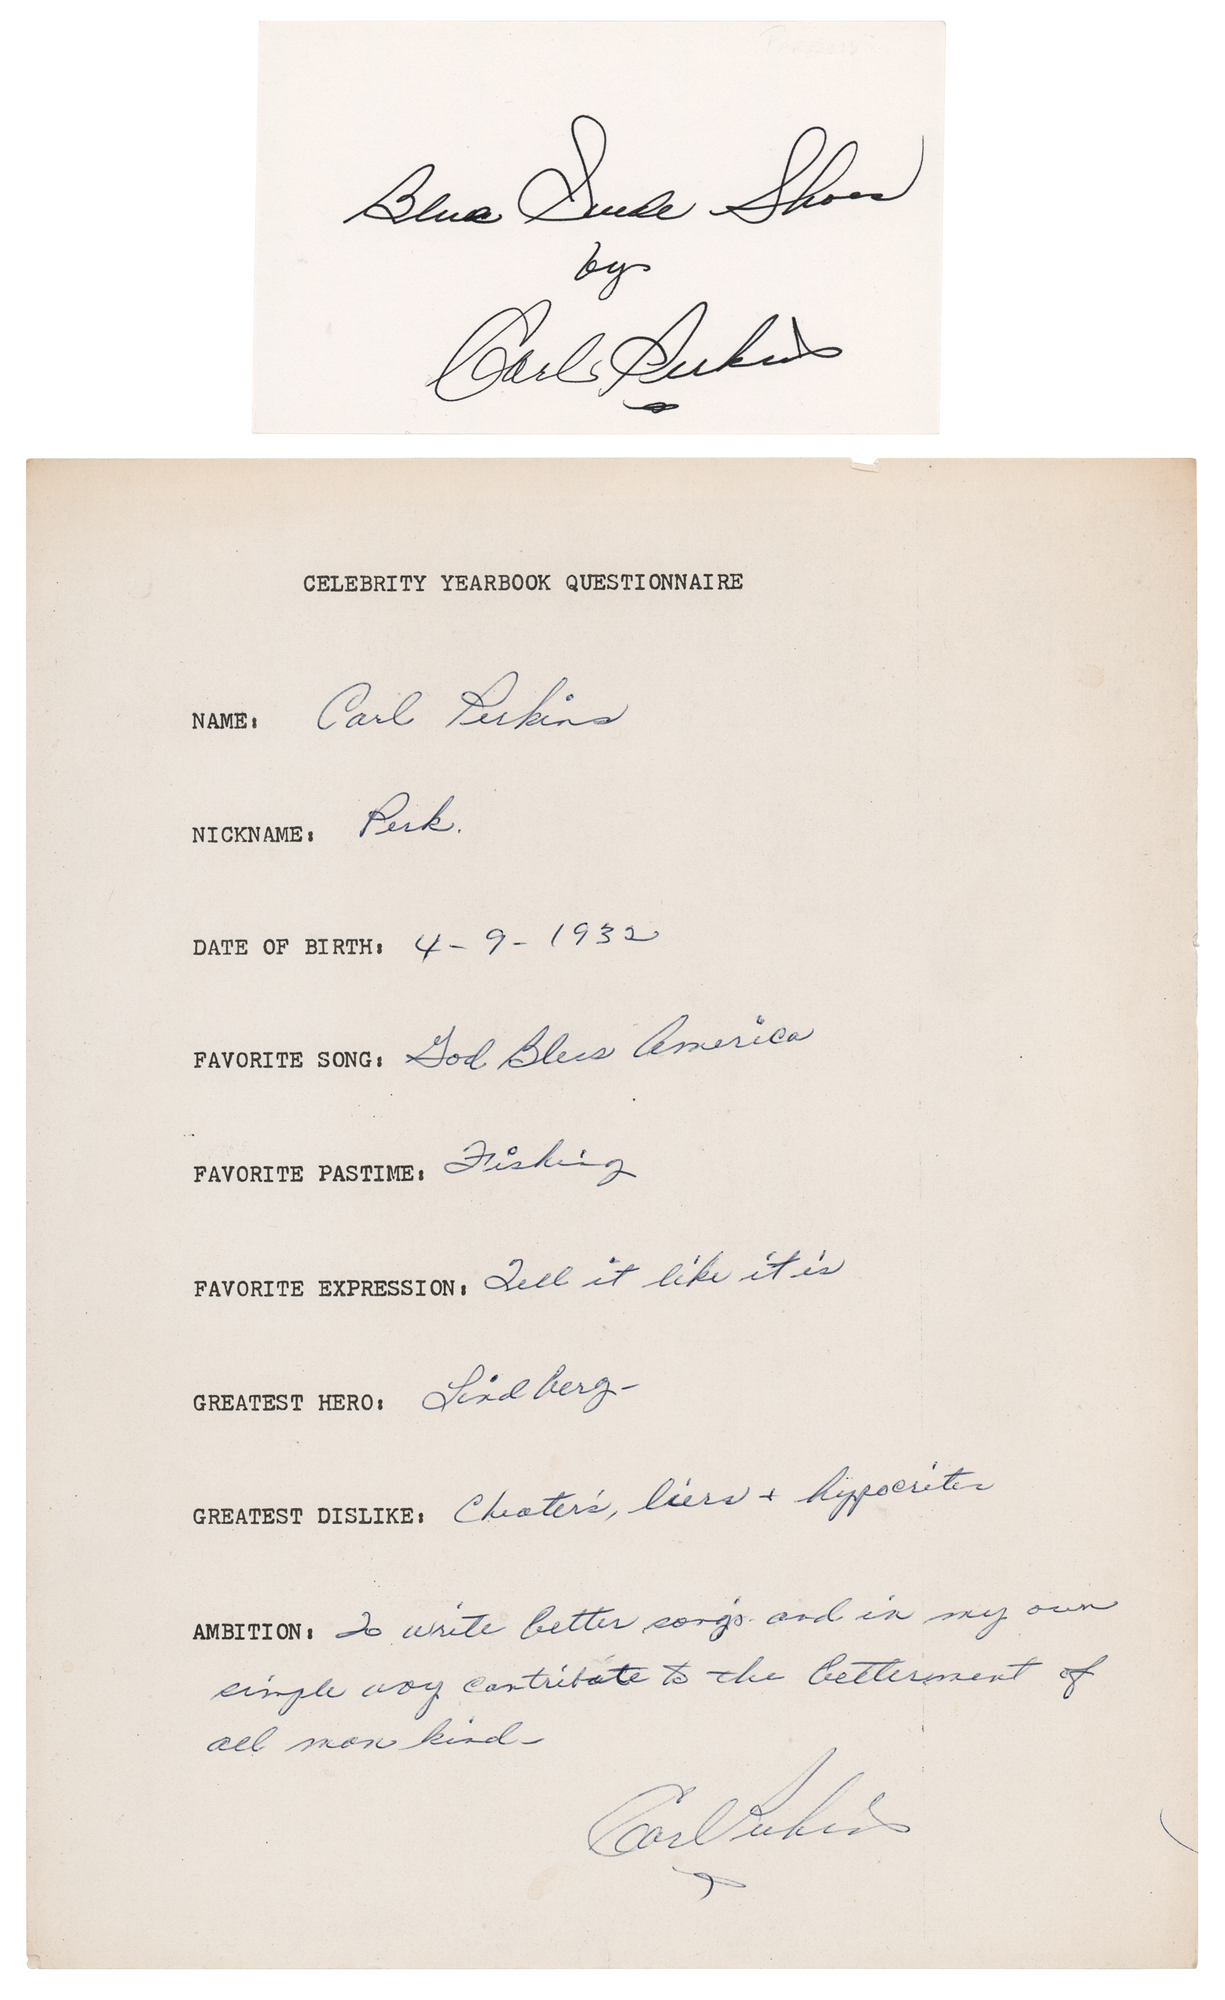 Blue Suede Shoes
by
Carl Perkins
CELEBRITY YEARBOOK QUESTIONNAIRE
NAME: Carl Perkins
NICKNAME: Perk.
DATE OF BIRTH: 4-9-1932
FAVORITE SONG: God Bless America
FAVORITE PASTIME: Fishing
FAVORITE EXPRESSION: Tell it like it is
GREATEST HERO: Lindberg-
GREATEST DISLIKE: Cheaters, liers + hypocrites
AMBITION: To write better songs and in my own
simple way contribute to the betterment of
all man kind-
Carl Perkins